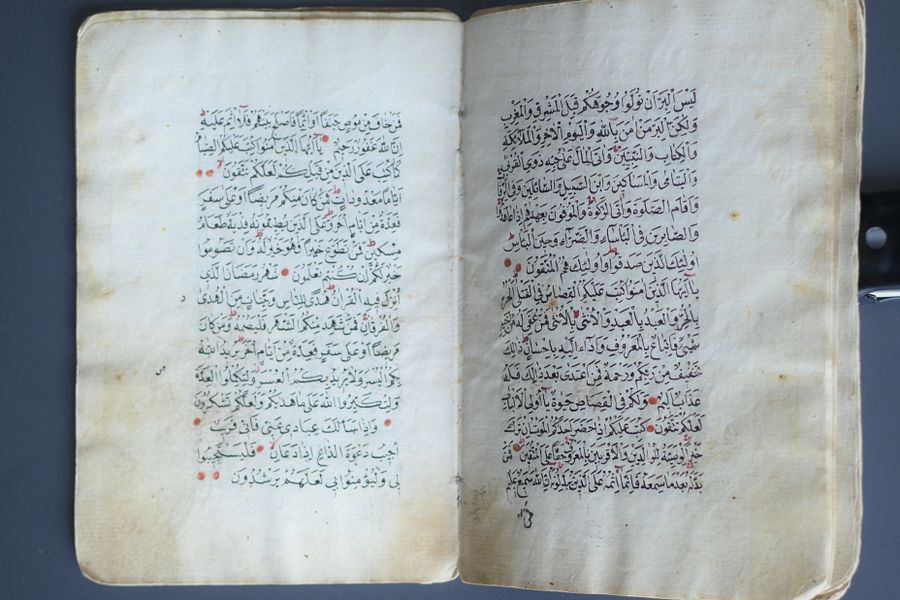 لَيْسَ الْبِرَّ اَنْ تُوَلُّوا وُجُوهَكُمْ قِبَلَ الْمَشْرِقِ وَالْمَغْرِبِ
وَلٰكِنَّ الْبِرَّ مَنْ اٰمَنَ بِاللهِ وَالْيَوْمِ الْاٰخِرِ وَالْمَلٰئِكَةِ
وَالْكِتَابِ وَالنَّبِيّٖنَ وَاٰتَى الْمَالَ عَلٰى حُبِّهٖ ذَوِي الْقُرْبٰى
وَالْيَتَامٰى وَالْمَسَاكِينَ وَابْنَ السَّبِيلِ وَالسَّائِلِينَ وَفِي الرِّقَابِ
وَاَقَامَ الصَّلٰوةَ وَاٰتَى الزَّكٰوةَ وَالْمُوفُونَ بِعَهْدِهِمْ اِذَا عَاهَدُوا
وَالصَّابِرِينَ فِي الْبَأْسَاءِ وَالضَّرَّاءِ وَحِينَ الْبَأْسِ
اُولٰئِكَ الَّذِينَ صَدَقُوا وَاُولٰئِكَ هُمُ الْمُتَّقُونَ
يَا اَيُّهَا الَّذِينَ اٰمَنُوا كُتِبَ عَلَيْكُمُ الْقِصَاصُ فِي الْقَتْلٰى اَلْحُرُّ
بِالْحُرِّ وَالْعَبْدُ بِالْعَبْدِ وَالْاُنْثٰى بِالْاُنْثٰى فَمَنْ عُفِيَ لَهُ مِنْ اَخِيهِ
شَيْءٌ فَاتِّبَاعٌ بِالْمَعْرُوفِ وَاَدَاءٌ اِلَيْهِ بِاِحْسَانٍ ذٰلِكَ
تَخْفِيفٌ مِنْ رَبِّكُمْ وَرَحْمَةٌ فَمَنِ اعْتَدٰى بَعْدَ ذٰلِكَ فَلَهُ
عَذَابٌ اَلِيمٌ وَلَكُمْ فِي الْقِصَاصِ حَيٰوةٌ يَا اُولِي الْاَلْبَابِ
لَعَلَّكُمْ تَتَّقُونَ كُتِبَ عَلَيْكُمْ اِذَا حَضَرَ اَحَدَكُمُ الْمَوْتُ اِنْ تَرَكَ
خَيْرًا الْوَصِيَّةُ لِلْوَالِدَيْنِ وَالْاَقْرَبِينَ بِالْمَعْرُوفِ حَقًّا عَلَى الْمُتَّقِينَ فَمَنْ
بَدَّلَهُ بَعْدَ مَا سَمِعَهُ فَاِنَّمَا اِثْمُهُ عَلَى الَّذِينَ يُبَدِّلُونَهُ اِنَّ اللهَ سَمِيعٌ عَلِيمٌ
فَمَنْ
فَمَنْ خَافَ مِنْ مُوصٍ جَنَفًا اَوْ اِثْمًا فَاَصْلَحَ بَيْنَهُمْ فَلَا اِثْمَ عَلَيْهِ
اِنَّ اللهَ غَفُورٌ رَحِيمٌ يَا اَيُّهَا الَّذِينَ اٰمَنُوا كُتِبَ عَلَيْكُمُ الصِّيَامُ
كَمَا كُتِبَ عَلَى الَّذِينَ مِنْ قَبْلِكُمْ لَعَلَّكُمْ تَتَّقُونَ
اَيَّامًا مَعْدُودَاتٍ فَمَنْ كَانَ مِنْكُمْ مَرِيضًا اَوْ عَلٰى سَفَرٍ
فَعِدَّةٌ مِنْ اَيَّامٍ اُخَرَ وَعَلَى الَّذِينَ يُطِيقُونَهُ فِدْيَةٌ طَعَامُ
مِسْكِينٍ فَمَنْ تَطَوَّعَ خَيْرًا فَهُوَ خَيْرٌ لَهُ وَاَنْ تَصُومُوا
خَيْرٌ لَكُمْ اِنْ كُنْتُمْ تَعْلَمُونَ شَهْرُ رَمَضَانَ الَّذِي
اُنْزِلَ فِيهِ الْقُرْاٰنُ هُدًى لِلنَّاسِ وَبَيِّنَاتٍ مِنَ الْهُدٰى
وَالْفُرْقَانِ فَمَنْ شَهِدَ مِنْكُمُ الشَّهْرَ فَلْيَصُمْهُ وَمَنْ كَانَ
مَرِيضًا اَوْ عَلٰى سَفَرٍ فَعِدَّةٌ مِنْ اَيَّامٍ اُخَرَ يُرِيدُ اللهُ
بِكُمُ الْيُسْرَ وَلَا يُرِيدُ بِكُمُ الْعُسْرَ وَلِتُكْمِلُوا الْعِدَّةَ
وَلِتُكَبِّرُوا اللهَ عَلٰى مَا هَدٰيكُمْ وَلَعَلَّكُمْ تَشْكُرُونَ
وَاِذَا سَاَلَكَ عِبَادِي عَنِّي فَاِنِّي قَرِيبٌ
اُجِيبُ دَعْوَةَ الدَّاعِ اِذَا دَعَانِ فَلْيَسْتَجِيبُوا
لِي وَلْيُؤْمِنُوا بِي لَعَلَّهُمْ يَرْشُدُونَ